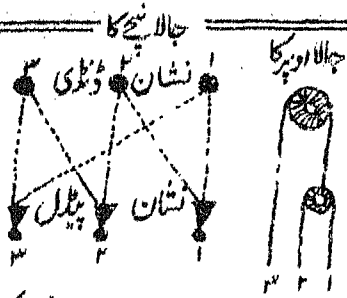 جالا نیچے کا
جالا اوپر کا
۱ نشان ۲ ڈنڈی ۳
نشان پیڈل
۱ ۲ ۳
۱ ۲ ۳